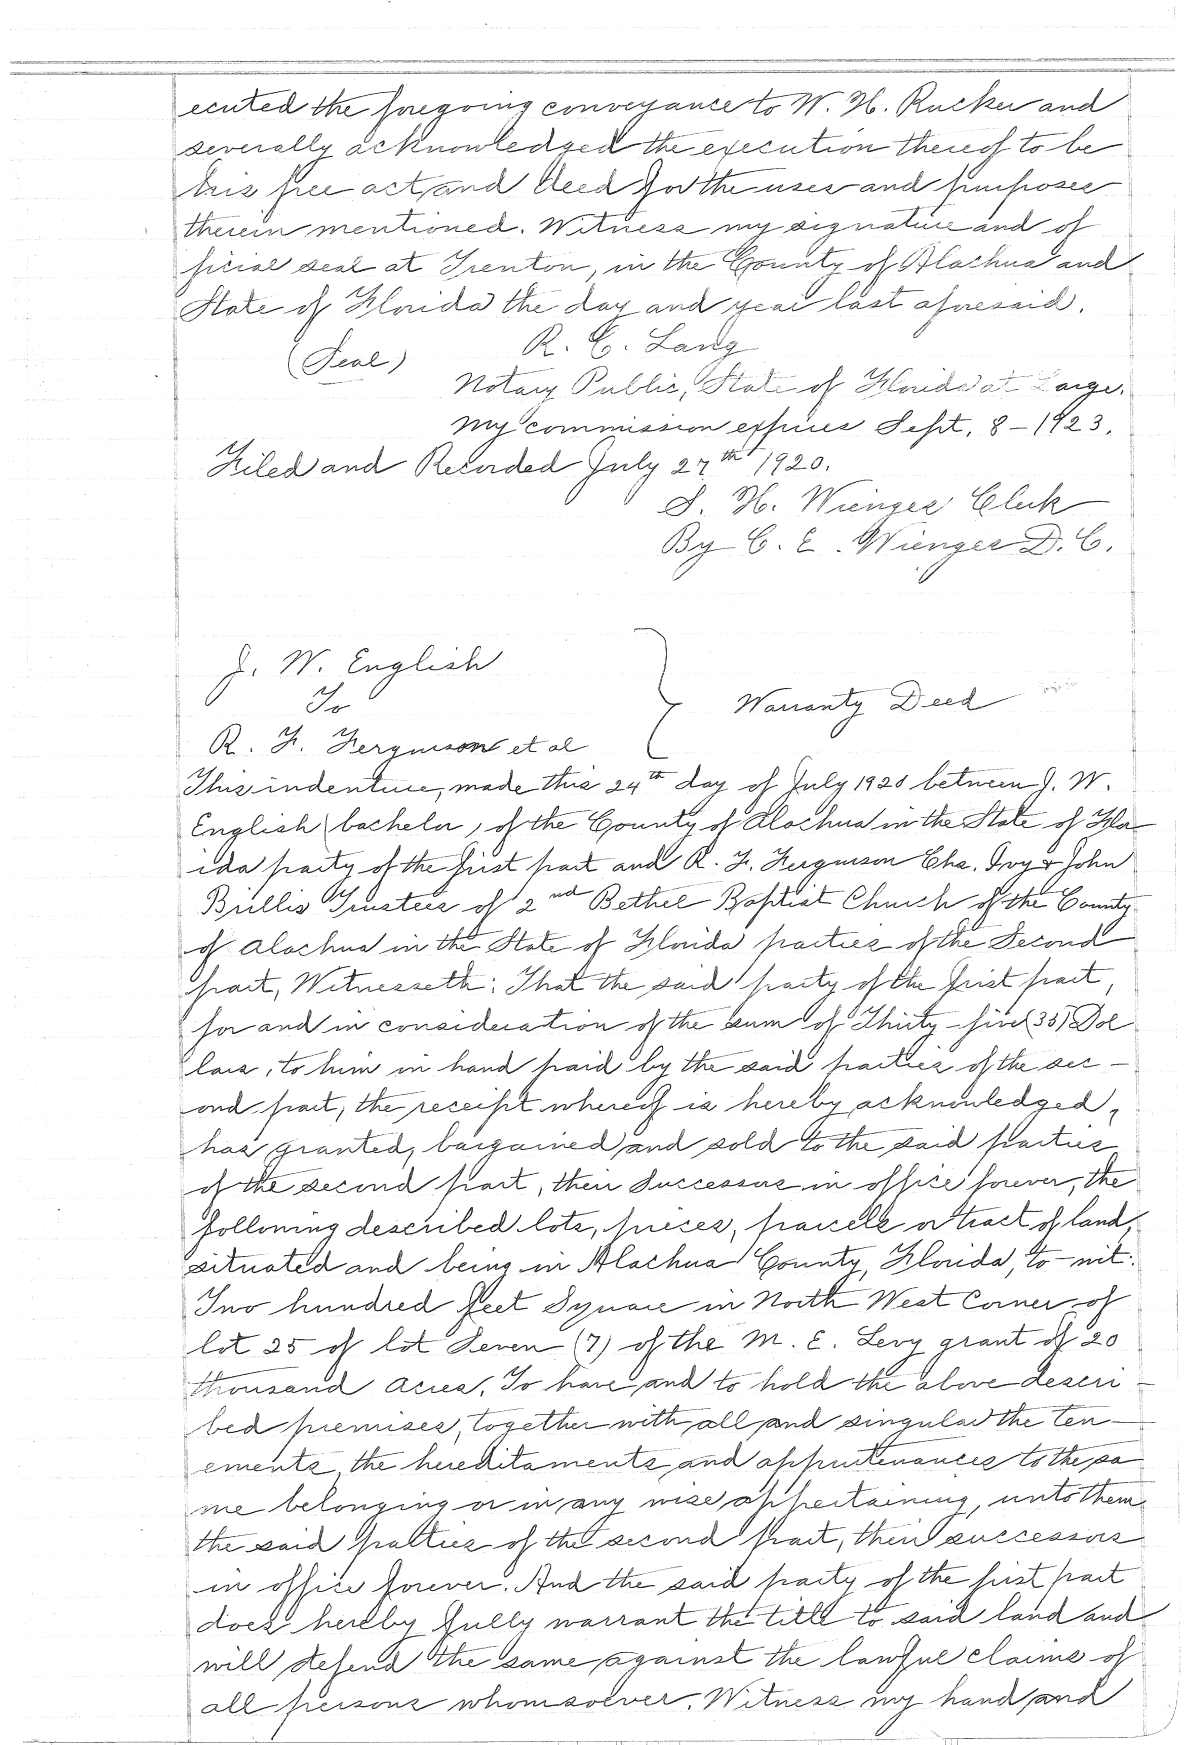 ecuted the foregoing conveyance to W. H. Rucker and
severally acknowledged the execution thereof to be
his free act and deed for the uses and purposes
therein mentioned. Witness my signature and of
ficial seal at Trenton, in the County of Alachua and
State of Florida the day and year last aforesaid.
R. C. Lang
(Seal)
Notary Public, State of Florida at Large.
My commission expires Sept. 8 - 1923.
Filed and Recorded July 27th 1920.
S. H. Wienges Clerk
By C. E. Wienges D. C.
J. W. English
To
Warranty Deed
R. F. Ferguson et al
This indenture, made this 24th day of July 1920 between J. W.
English bachelor, of the County of Alachua in the State of Flo
ida party of the first part and R. F. Ferguson Cha. Ivy & John
Trustees of 2nd Bethel Baptist Church of the County
of Alachua in the State of Florida parties of the Second
part, Witnesseth: That the said party of the first part,
for and in consideration of the sum of Thirty-five (35) Dol
lars, to him in hand paid by the said parties of the sec -
ond part, the receipt whereof is hereby acknowledged,
has granted, bargained and sold to the said parties
of the second part, their Successors in office forever, the
following described lots, pieces, parcels or tract of land,
situated and being in Alachua County, Florida, to-wit:
Two hundred feet Square in North West Corner of
lot 25 of lot Seven (7) of the M. E. Levy grant of 20
thousand acres. To have and to hold the above descri -
bed premises, together with all and singular the ten -
ements, the hereditaments and appurtenances to the sa
me belonging or in any wise appertaining, unto them
the said parties of the second part, their successors
in office forever. And the said party of the first part
does hereby fully warrant the title to said land and
will defend the same against the lawful claims of
all persons whomsoever. Witness my hand and